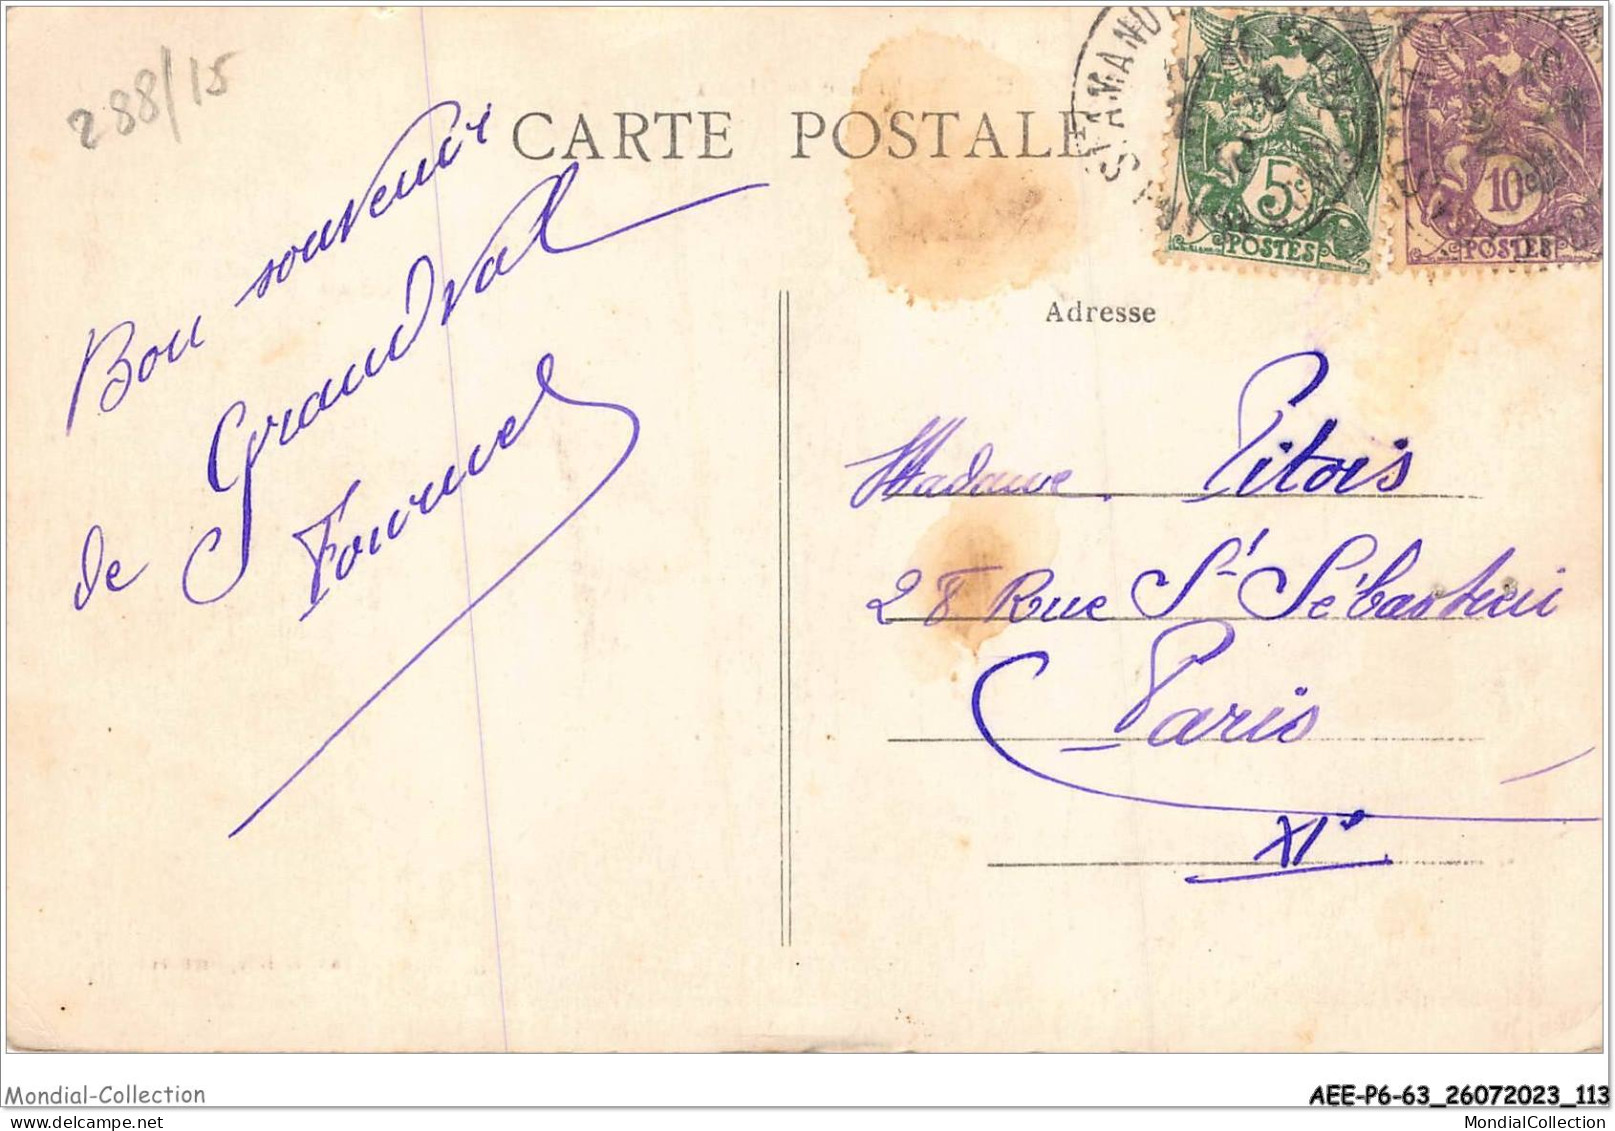 288/15
CARTE POSTALE
ST AMAND
5c
POSTES
10c
POSTES
Bon souvenir
de Grandval
Fournel
Adresse
Madame Pitois
28 Rue St Sébastien
Paris
XIe
Mondial-Collection
AEE-P6-63_26072023_113
MondialCollection